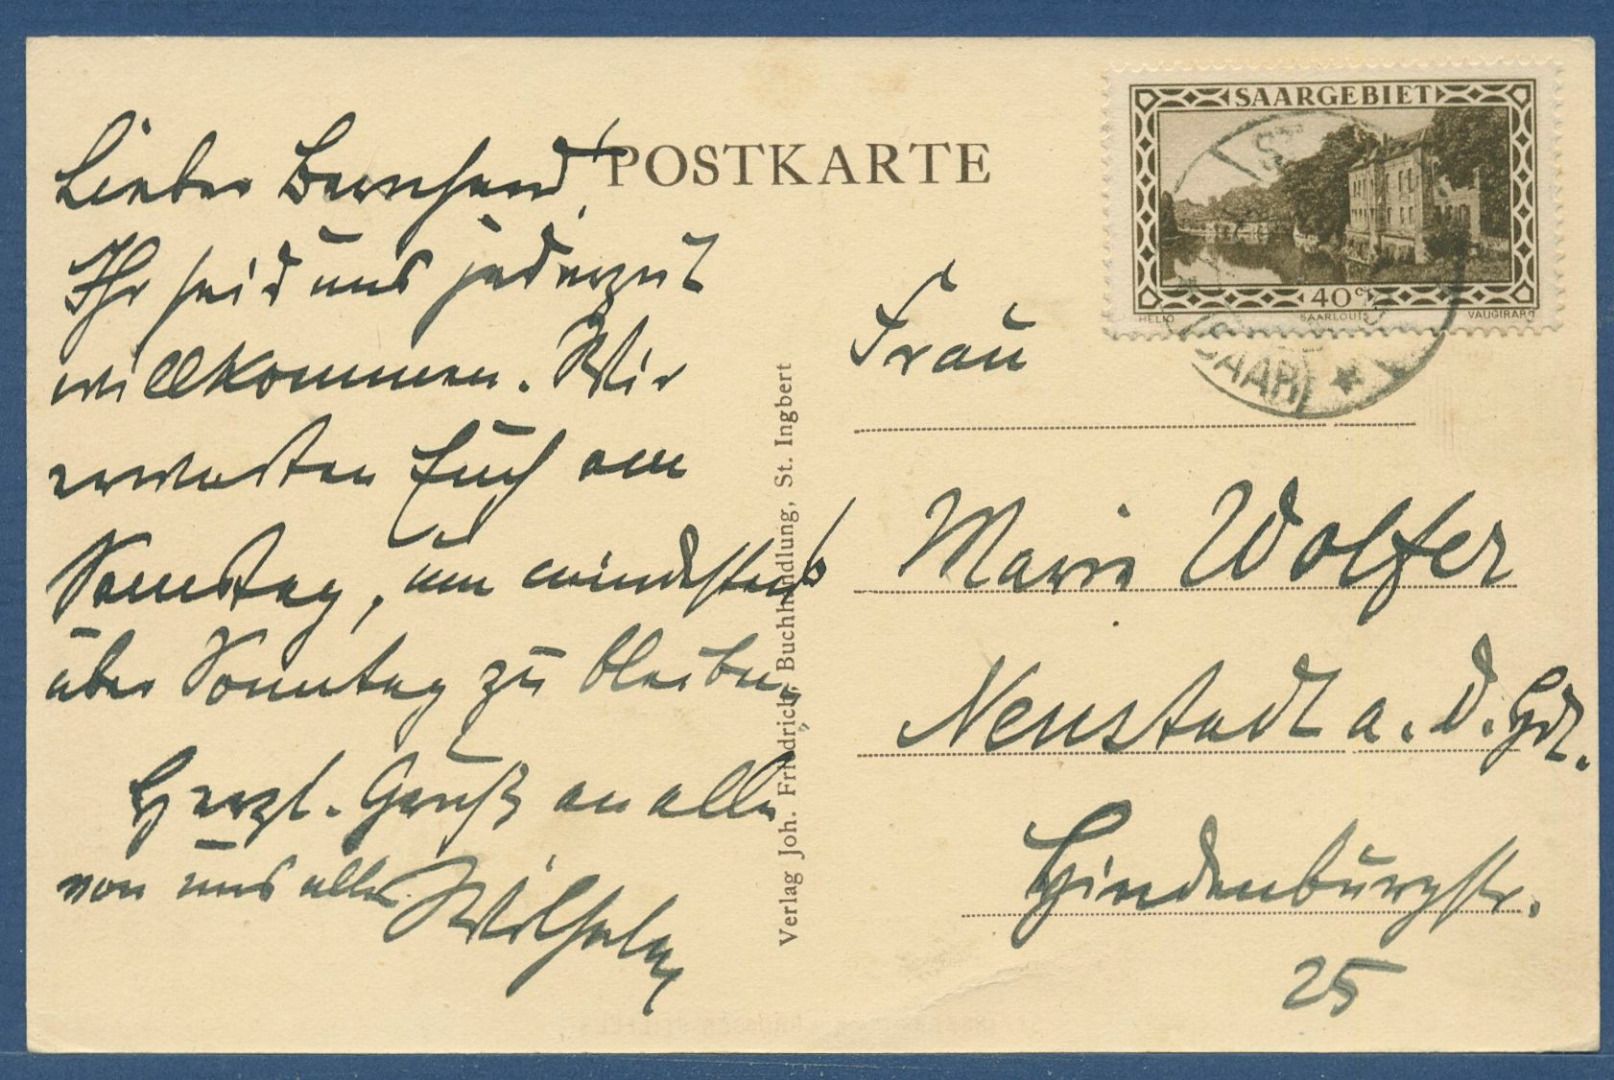 Lieber Bernhard,
Ihr seid uns jederzeit
willkommen. Wir
erwarten Euch am
Samstag, um mindestens
über Sonntag zu bleiben.
Herzl. Gruß an alle
von uns allen. Wilhelm
POSTKARTE
Verlag Joh. Friedrich, Buchhandlung, St. Ingbert
SAARGEBIET
40 c
HELIO SAARLOUIS VAUGIRARD
ST.
(SAAR)
Frau
Marie Wolfer
Neustadt a. d. Hdt.
Hindenburgstr.
25